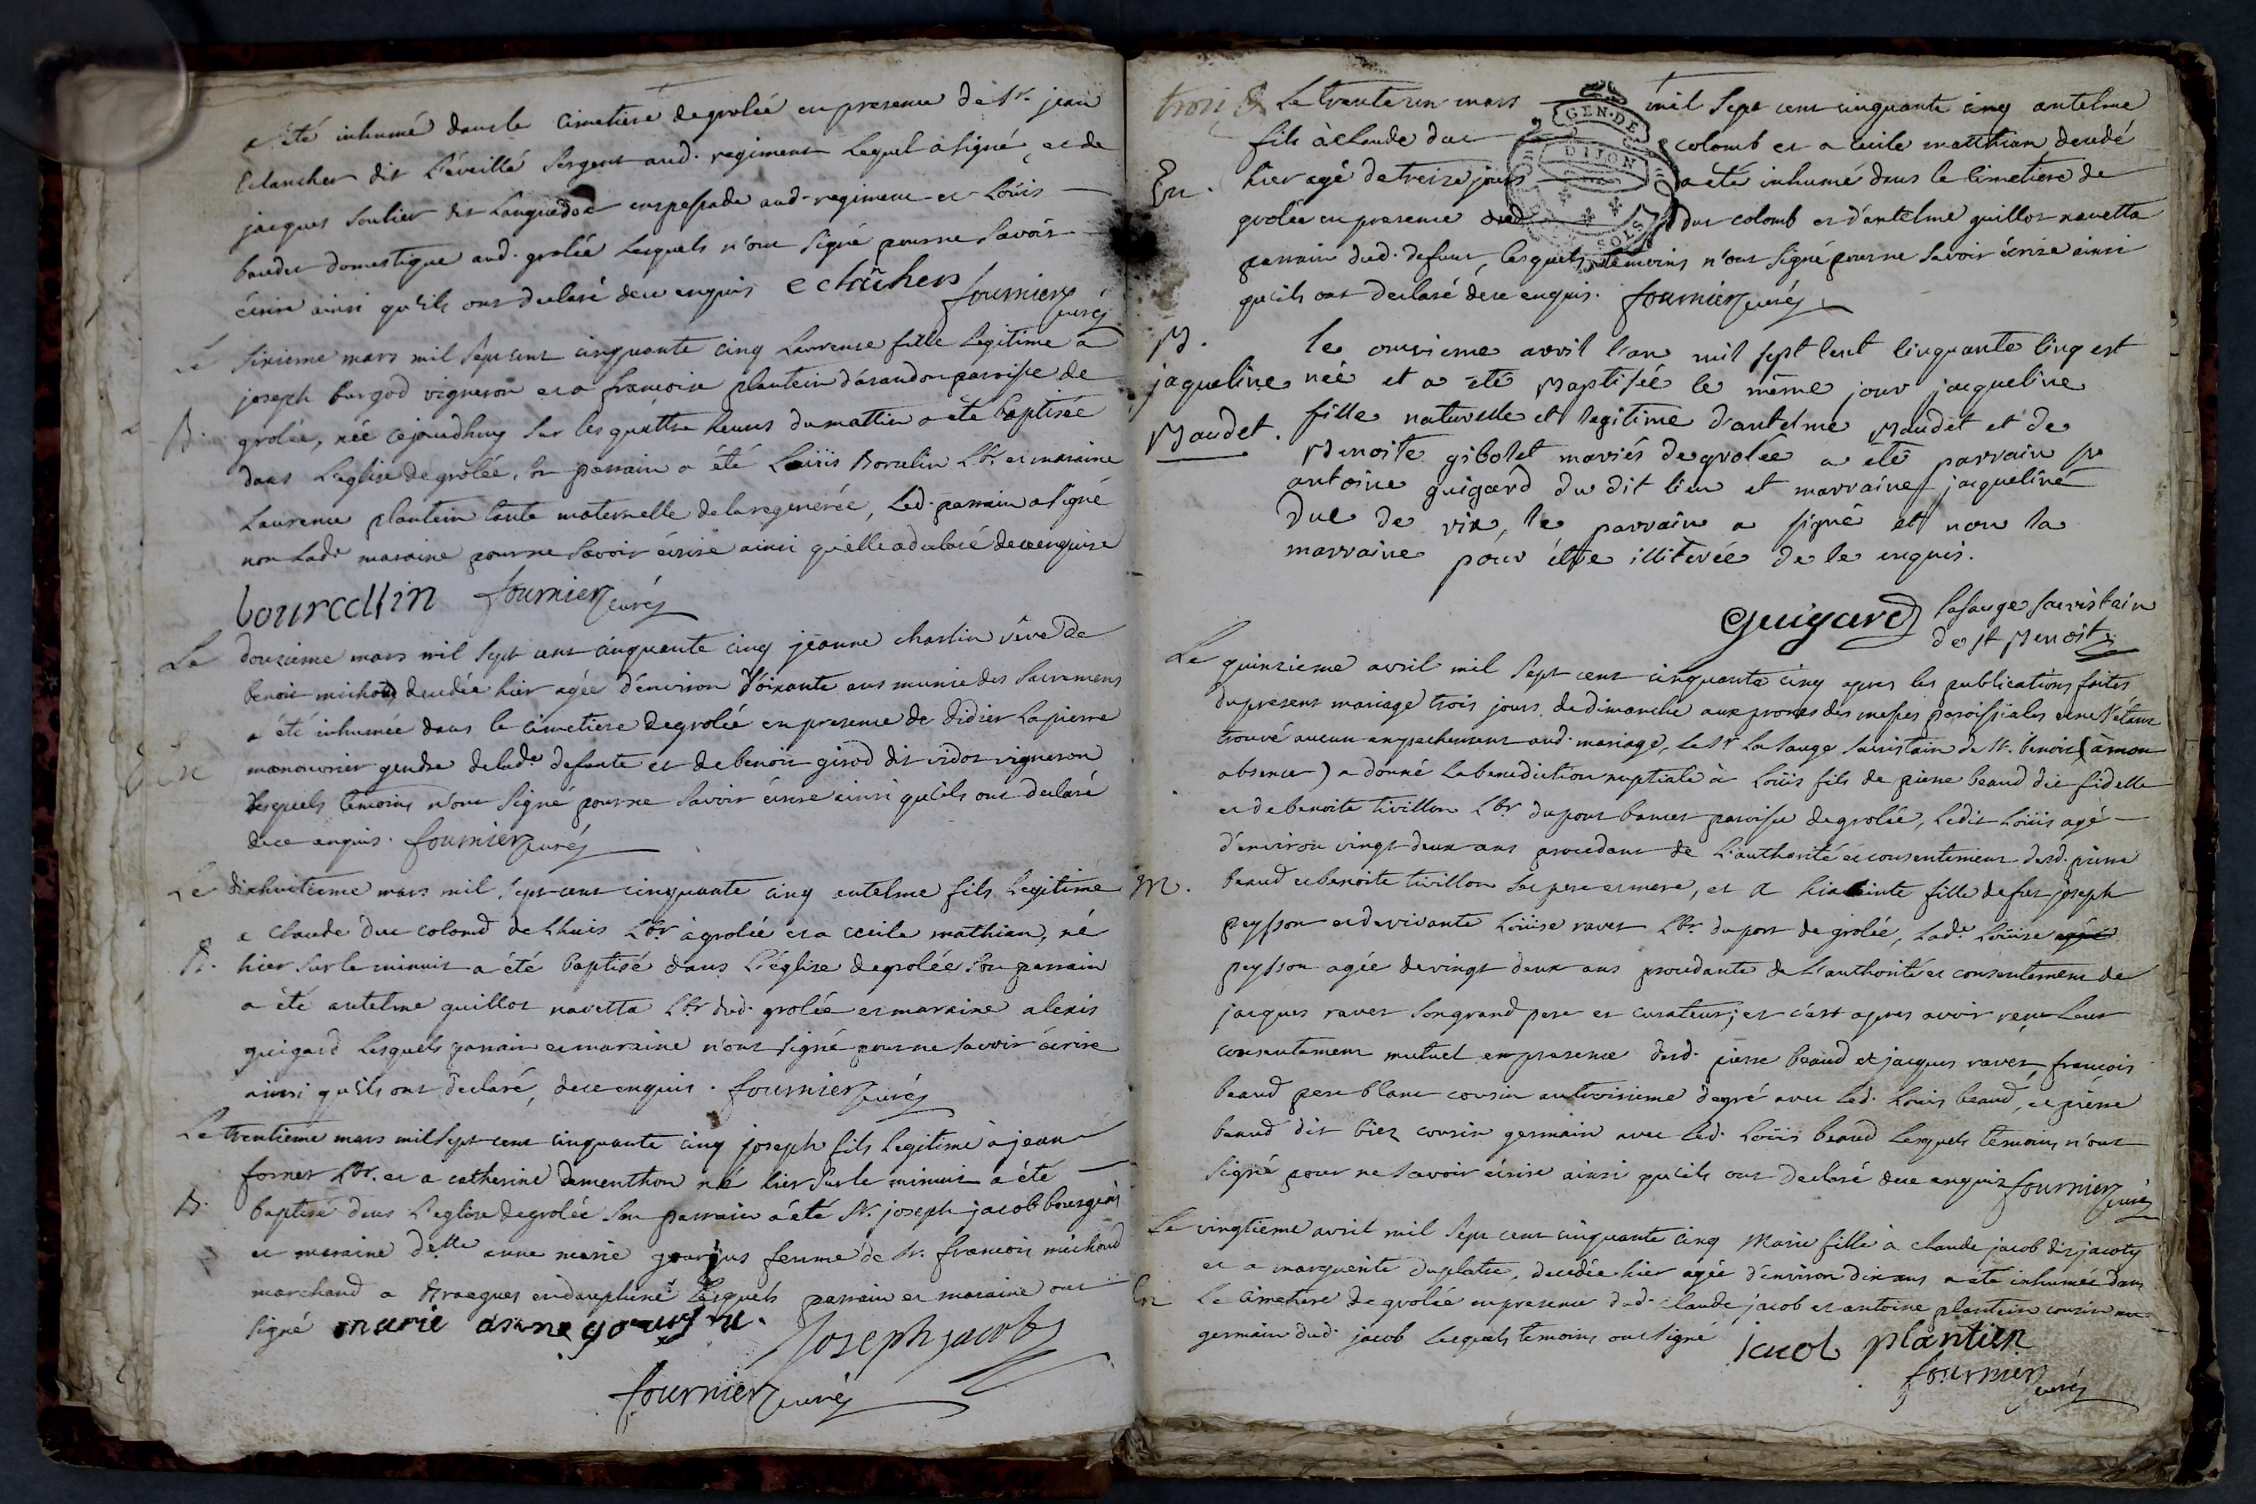 a été inhumé dans le cimetiere de grolée en presence de Sr. jean
Eclancher dit L'éveillé Sergent aud. regiment Lequel a signé, et de
jacques Soulier dit Languedoc enspessade aud. regiment et Loüis
baudet domestique aud. grolée Lesquels n'ont Signé pour ne Savoir
écrire ainsi qu'ils ont declaré de ce enquis
fournier curé
Le Sixieme mars mil Sept cent cinquante cinq Laurence fille Legitime a
joseph burgod vigneron et a francoise plantein d'arandon paroisse de
B. grolée, née cejourdhuy Sur les quattre heures du mattin a été baptisée
dans L'église de grolée, Son parrain a été Loüis Borcelin Lbr. et maraine
Laurence plantein tante maternelle de la regenerée, Led. parrain a signé
non Lade. maraine pour ne Savoir écrire ainsi qu'elle a declaré de ce enquise
bourcellin fournier curé
Le douzieme mars mil Sept cent cinquante cinq jeanne charlin vêve de
benoit michoud decedée hier agée d'environ Soixante ans munie des Sacremens
a été inhumée dans le cimetiere de grolée en presence de didier Lapierre
manouvrier gendre de lade. defunte et de benoit girod dit vidot vigneron
Lesquels temoins n'ont Signé pour ne Savoir écrire ainsi qu'ils ont declaré
de ce enquis. fournier curé
Le dixhuitieme mars mil Sept cent cinquante cinq antelme fils Legitime
a claude duc colomb de Lhuis Lbr. à grolée et a cecile mathian, né
B. hier Sur le minuit a été baptisé dans L'église de grolée Son parrain
a été antelme guillot navetta Lbr. dud. grolée et maraine alexis
guigard Lesquels parrain et maraine n'ont Signé pour ne Savoir écrire
ainsi qu'ils ont declaré, de ce enquis. fournier curé
Le trentieme mars mil Sept cent cinquante cinq joseph fils Legitime à jean
fornet Lbr. et a catherine dementhon né hier Sur le minuit a été
B. baptisé dans L'eglise de grolée Son parrain a été Sr. joseph jacob bourgeois
et maraine delle anne marie femme de Sr. francois michoud
marchand a Braegues en dauphiné Lesquels parrain et maraine ont
Signé marie anne
Joseph jacob
fournier curé
trois Le trente un mars mil Sept cent cinquante cinq antelme
fils à claude duc colomb et a cecile matthian decedé
En. hier agé de treize jours a été inhumé dans le cimetiere de
grolée en presence dud duc colomb et d'antelme guillot navetta
parrain dud. defunt, lesquels témoins n'ont Signé pour ne Savoir écrire ainsi
qu'ils ont declaré de ce enquis. fournier curé
GEN. DE
DIJON
SOLS
B. le onzieme avril l'an mil sept cent cinquante cinq est
jaqueline née et a été Baptisée le même jour jacqueline
Baudet. fille naturelle et legitime d'antelme Baudet et de
Benoite gibolet mariés de grolée a été parrain sr
antoine guigard du dit lieu et marraine jacqueline
Duc de vix, le parrain a signé et non la
marraine pour être illiterée de ce enquis.
Guigard lasauge sacristain
de st Benoit
Le quinzieme avril mil Sept cent cinquante cinq apres les publications faites
du present mariage trois jours de dimanche aux prones des messes paroissiales et ne S'étant
trouvé aucun empechement aud. mariage, Le Sr. La Sauge Sacristain de St. benoit (à mon
absence) a donné La benediction nuptiale à Loüis fils de pierre beaud dit fidelle
et de benoite tivillon Lbr. du pont bancet paroisse de grolée, Ledit Loüis agé
d'environ vingt deux ans procedant de L'authorité et consentement desd. pierre
M. beaud et benoite tivillon Ses pere et mere, et a fille de feu joseph
peysson et de vivante Loüise ravet Lbr. du port de grolée, Lade. Loüise
peysson agée de vingt deux ans procedante de L'authorité et consentement de
jacques ravet Son grand pere et curateur; et c'ést apres avoir reçu Leur
consentement mutuel en presence desd. pierre beaud et jacques ravet, francois
beaud pere blanc cousin au troisieme degré avec Led. Loüis beaud, et pierre
beaud dit biez cousin germain avec Led. Loüis beaud Lesquels témoins n'ont
Signé pour ne Savoir écrire ainsi qu'ils ont declaré de ce enquis fournier curé
Le vingtieme avril mil Sept cent cinquante cinq Marie fille à claude jacob dit jacoty
et a marguerite duplatre, decedée hier agée d'environ dix ans a été inhumée dans
En Le cimetiere de grolée en presence dud. claude jacob et antoine plantein cousin
germain dud. jacob Lesquels temoins ont Signé jacob plantien
fournier
curé